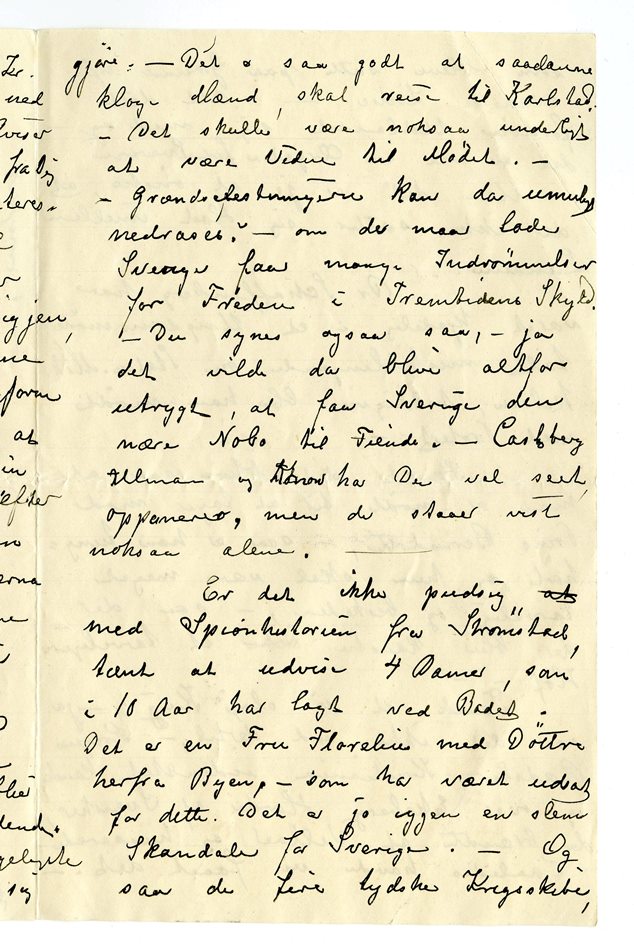 gjøre. — Det e saa godt at saadanne
kloge Mænd, skal reise til Karlstad.
— Det skulle være noksaa underligt
at være Vidne til Mødet. —
— Grændsefestningerne kan da umulig
nedrases? — om de maa lade
Sverige faa mange Indrømmelser
for Freden i Fremtidens Skyld.
— Du synes ogsaa saa, — ja
det vilde da blive altfor
utrygt, at faa Sverige den
nære Nobo til Fiende. — Castberg
Ullman og Konow ha Du vel seet,
opponerer, men de staaer vist
noksaa alene.
Er det ikke pudsig at
med Spionhistorien fra Strømstad,
tænt at udvise 4 Damer, som
i 10 Aar har lagt ved Badet.
Det er en Fru Florelius med Döttre
herfra Byen, — som ha været udsat
for dette. Det e jo iggjen en slem
Skandale for Sverige. — Og
saa de fire tydske Krigsskibe,
Zer.
ned
fra Dig
teres.
iggjen,
ne
at
efter
erna
ne
dende.
sig